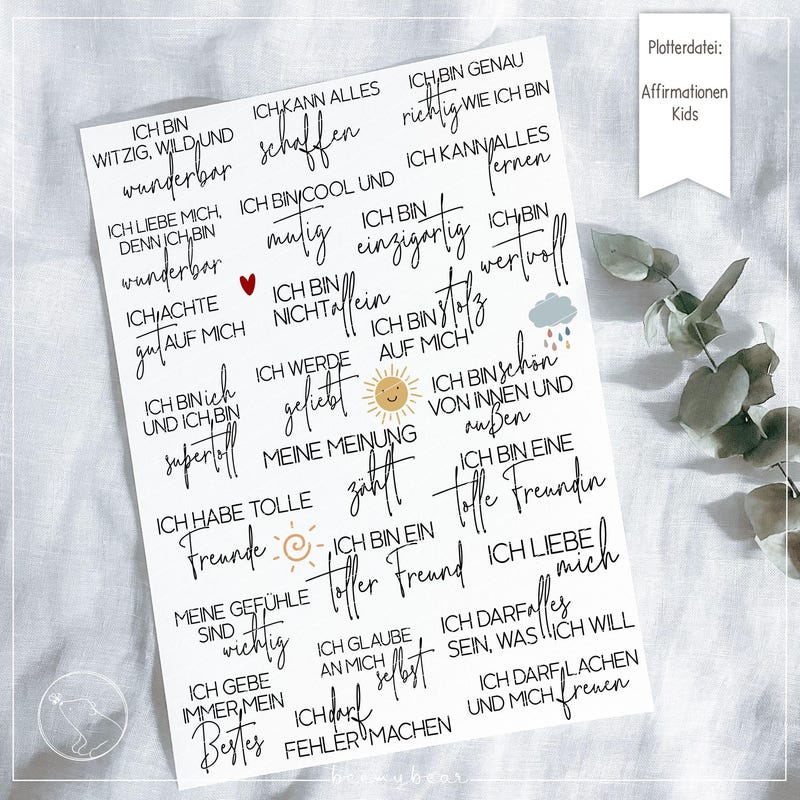 Plotterdatei:
Affirmationen
Kids
ICH BIN
WITZIG, WILD UND
wunderbar
ICH KANN ALLES
schaffen
ICH BIN GENAU
richtig WIE ICH BIN
ICH KANN ALLES
lernen
ICH LIEBE MICH,
DENN ICH BIN
wunderbar
ICH BIN COOL UND
mutig
ICH BIN
einzigartig
ICH BIN
wertvoll
ICH ACHTE
gut AUF MICH
ICH BIN
NICHT allein
ICH BIN stolz
AUF MICH
ICH BIN ich
UND ICH BIN
supertoll
ICH WERDE
geliebt
ICH BIN schön
VON INNEN UND
außen
MEINE MEINUNG
zählt
ICH BIN EINE
tolle Freundin
ICH HABE TOLLE
Freunde
ICH BIN EIN
toller Freund
ICH LIEBE
mich
MEINE GEFÜHLE
SIND wichtig
ICH GLAUBE
AN MICH selbst
ICH DARF alles
SEIN, WAS ICH WILL
ICH GEBE
IMMER MEIN
Bestes
ICH darf
FEHLER MACHEN
ICH DARF LACHEN
UND MICH freuen
beemybear